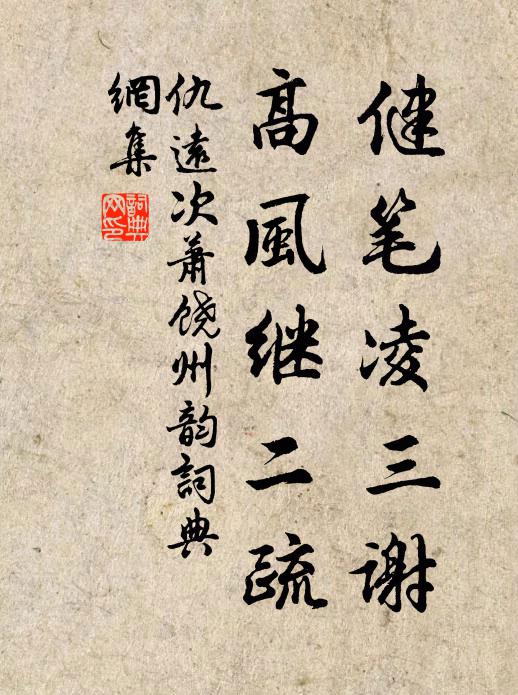 健笔凌三谢
高風继二疏
仇遠次萧饶州韵詞典
網集
詞典網印